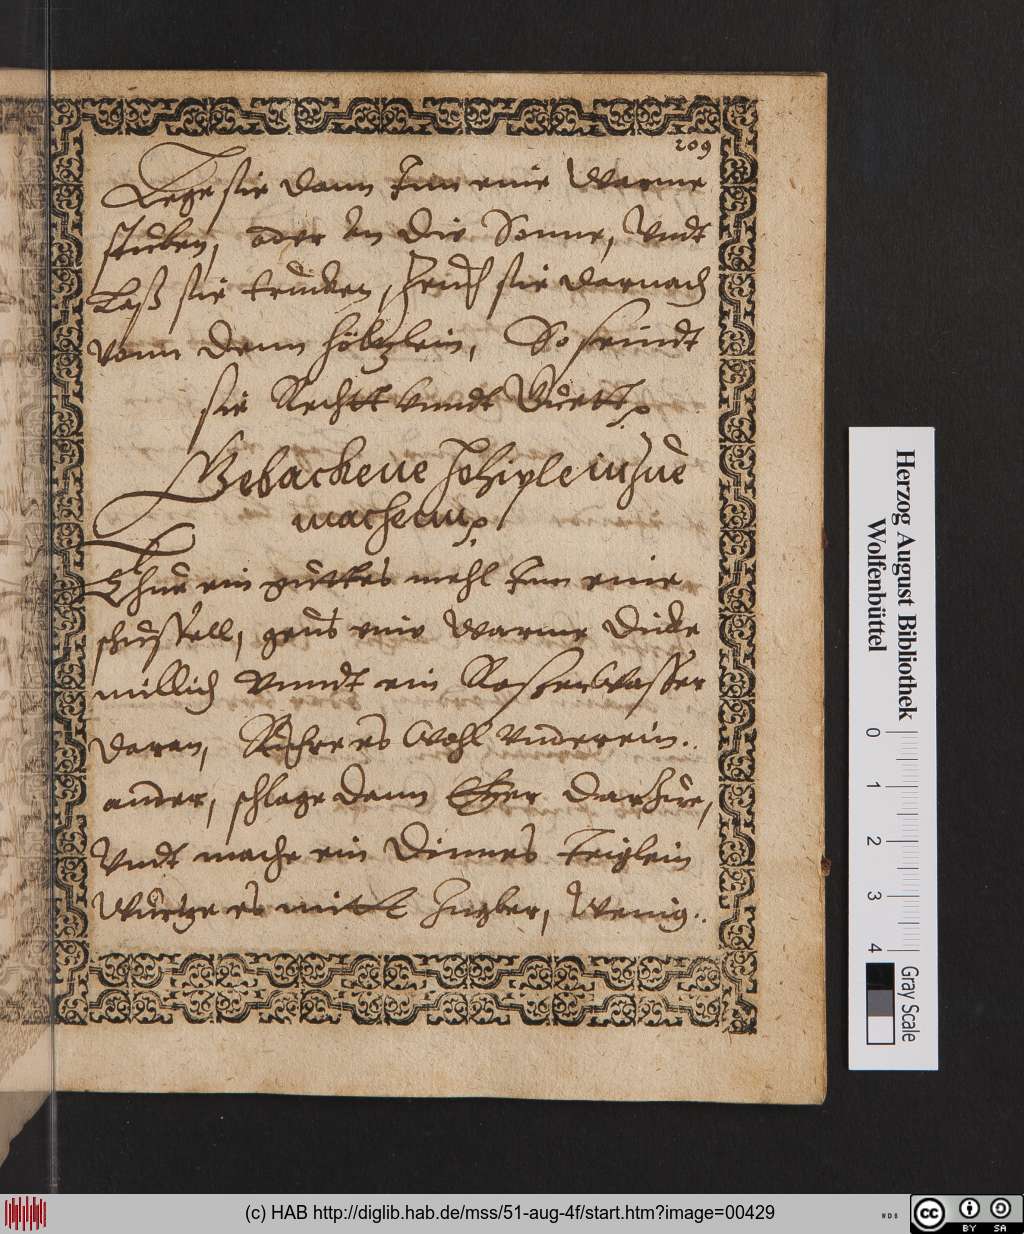 209
Lege sie dann Inn eine Warme
stuben, oder An die Sonne, Vndt
Laß sie trucken, Zeuch sie darnach
vonn denn höltzlein, So seindt
sie Rechtt vnndt Guett
Gebackene Hohiplein zue
machenn
Thue ein guttes mehl Inn eine
schüssell, geus eine Warme dicke
millich vnndt ein Rosenwasser
daran, Rühre es Wohl vnderein..
ander, schlage dann Eyer darzue,
Vndt mache ein dinnes teiglein
Würtze es mitt Ingber, Wenig..
Herzog August Bibliothek
Wolfenbüttel
0 1 2 3 4
Gray Scale
(c) HAB http://diglib.hab.de/mss/51-aug-4f/start.htm?image=00429
WDB
cc BY SA